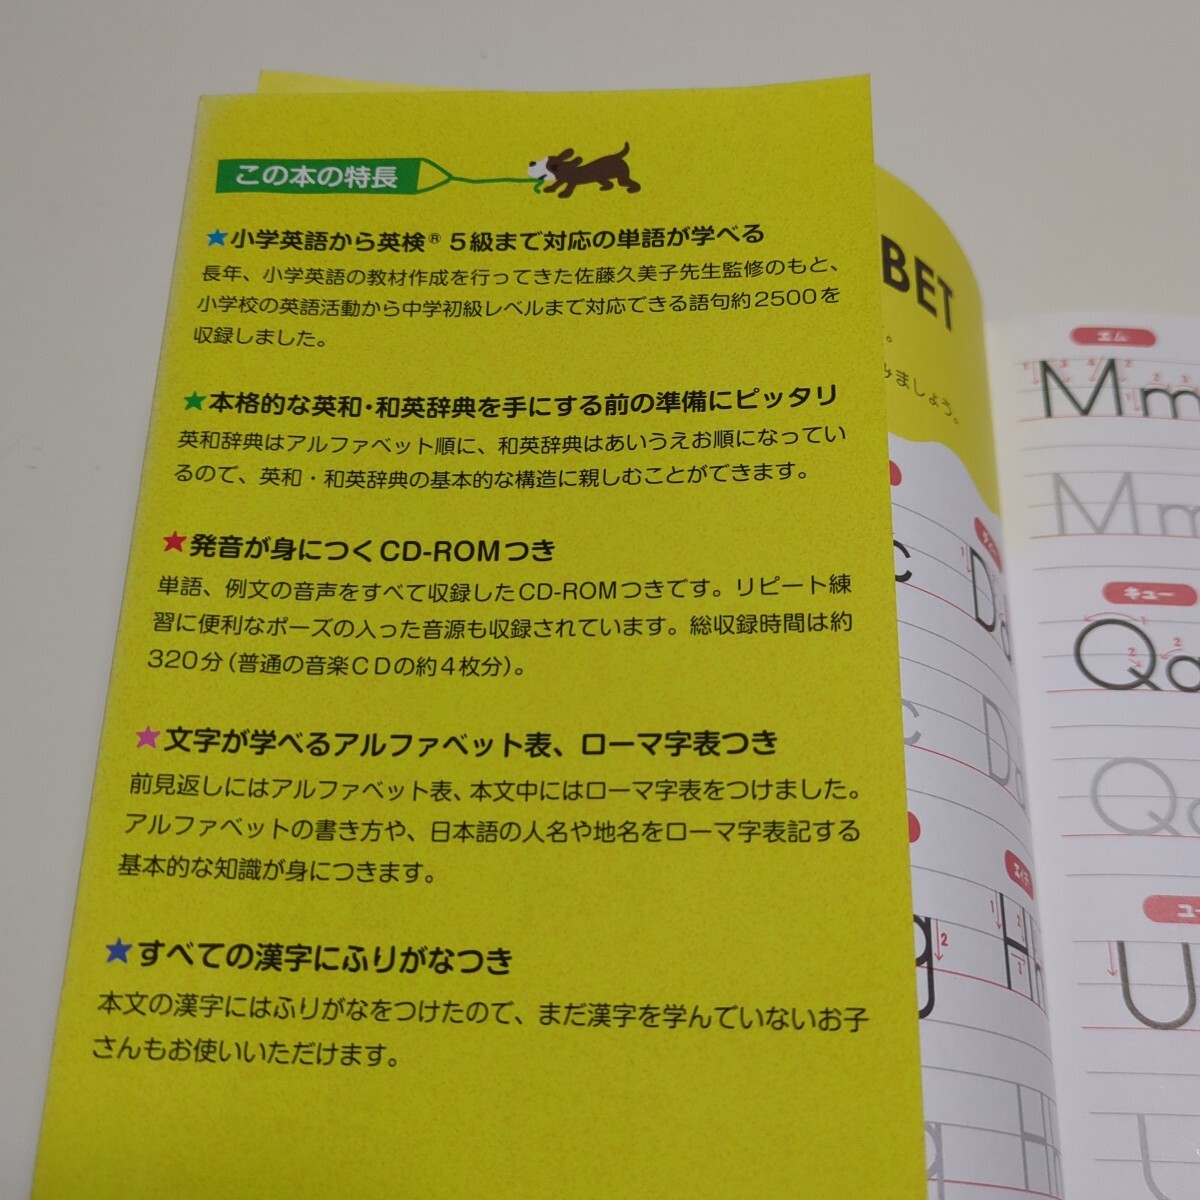 この本の特長
★小学英語から英検®５級まで対応の単語が学べる
長年、小学英語の教材作成を行ってきた佐藤久美子先生監修のもと、
小学校の英語活動から中学初級レベルまで対応できる語句約2500を
収録しました。
★本格的な英和・和英辞典を手にする前の準備にピッタリ
英和辞典はアルファベット順に、和英辞典はあいうえお順になってい
るので、英和・和英辞典の基本的な構造に親しむことができます。
★発音が身につくCD-ROMつき
単語、例文の音声をすべて収録したCD-ROMつきです。リピート練
習に便利なポーズの入った音源も収録されています。総収録時間は約
320分（普通の音楽CDの約4枚分）。
★文字が学べるアルファベット表、ローマ字表つき
前見返しにはアルファベット表、本文中にはローマ字表をつけました。
アルファベットの書き方や、日本語の人名や地名をローマ字表記する
基本的な知識が身につきます。
★すべての漢字にふりがなつき
本文の漢字にはふりがなをつけたので、まだ漢字を学んでいないお子
さんもお使いいただけます。
BET
。
みましょう。
c
Dd
c
Dd
エイチ
g
Hh
g
Hh
エム
Mm
Mm
キュー
Qq
Qq
U
U